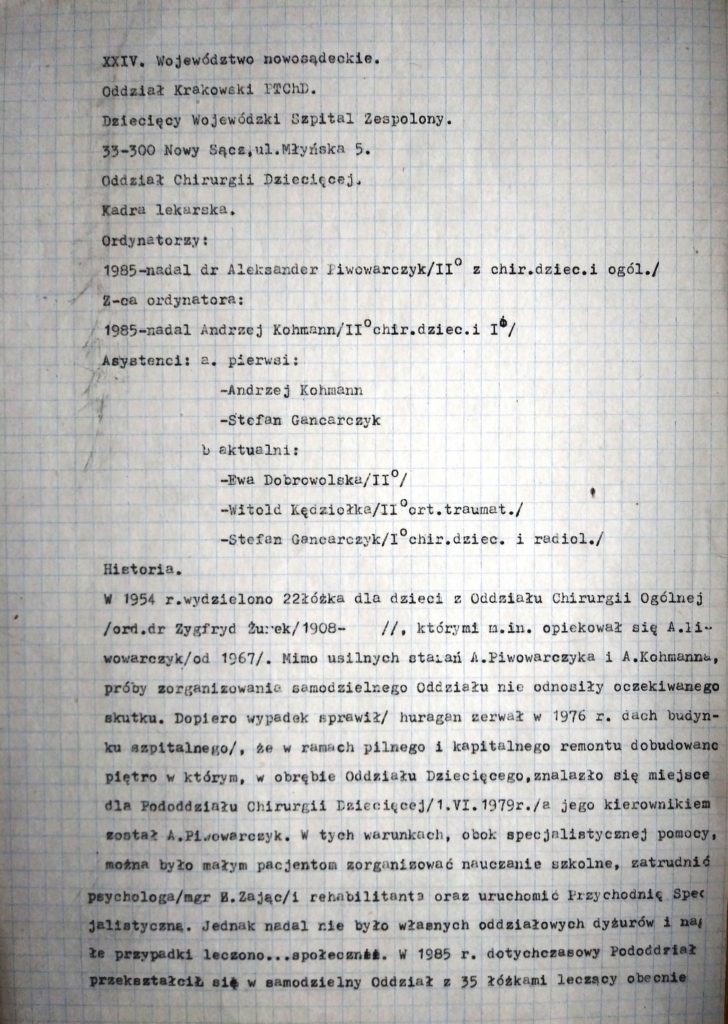 XXIV. Województwo nowosądeckie.
Oddział Krakowski PTChD.
Dziecięcy Wojewódzki Szpital Zespolony.
33-300 Nowy Sącz,ul.Młyńska 5.
Oddział Chirurgii Dziecięcej.
Kadra lekarska.
Ordynatorzy:
1985-nadal dr Aleksander Piwowarczyk/II° z chir.dziec.i ogól./
Z-ca ordynatora:
1985-nadal Andrzej Kohmann/II°chir.dziec.i I°/
Asystenci: a. pierwsi:
-Andrzej Kohmann
-Stefan Gancarczyk
b aktualni:
-Ewa Dobrowolska/II°/
-Witold Kędziołka/II°ort.traumat./
-Stefan Gancarczyk/I°chir.dziec. i radiol./
Historia.
W 1954 r.wydzielono 22łóżka dla dzieci z Oddziału Chirurgii Ogólnej
/ord.dr Zygfryd Żurek/1908- //, którymi m.in. opiekował się A.Pi-
wowarczyk/od 1967/. Mimo usilnych starań A.Piwowarczyka i A.Kohmanna,
próby zorganizowania samodzielnego Oddziału nie odnosiły oczekiwanego
skutku. Dopiero wypadek sprawił/ huragan zerwał w 1976 r. dach budyn-
ku szpitalnego/, że w ramach pilnego i kapitalnego remontu dobudowano
piętro w którym, w obrębie Oddziału Dziecięcego,znalazło się miejsce
dla Pododdziału Chirurgii Dziecięcej/1.VI.1979r./a jego kierownikiem
został A.Piwowarczyk. W tych warunkach, obok specjalistycznej pomocy,
można było małym pacjentom zorganizować nauczanie szkolne, zatrudnić
psychologa/mgr B.Zając/i rehabilitanta oraz uruchomić Przychodnię Spec
jalistyczną. Jednak nadal nie było własnych oddziałowych dyżurów i nag
łe przypadki leczono...społecznie. W 1985 r. dotychczasowy Pododdział
przekształcił się w samodzielny Oddział z 35 łóżkami leczący obecnie